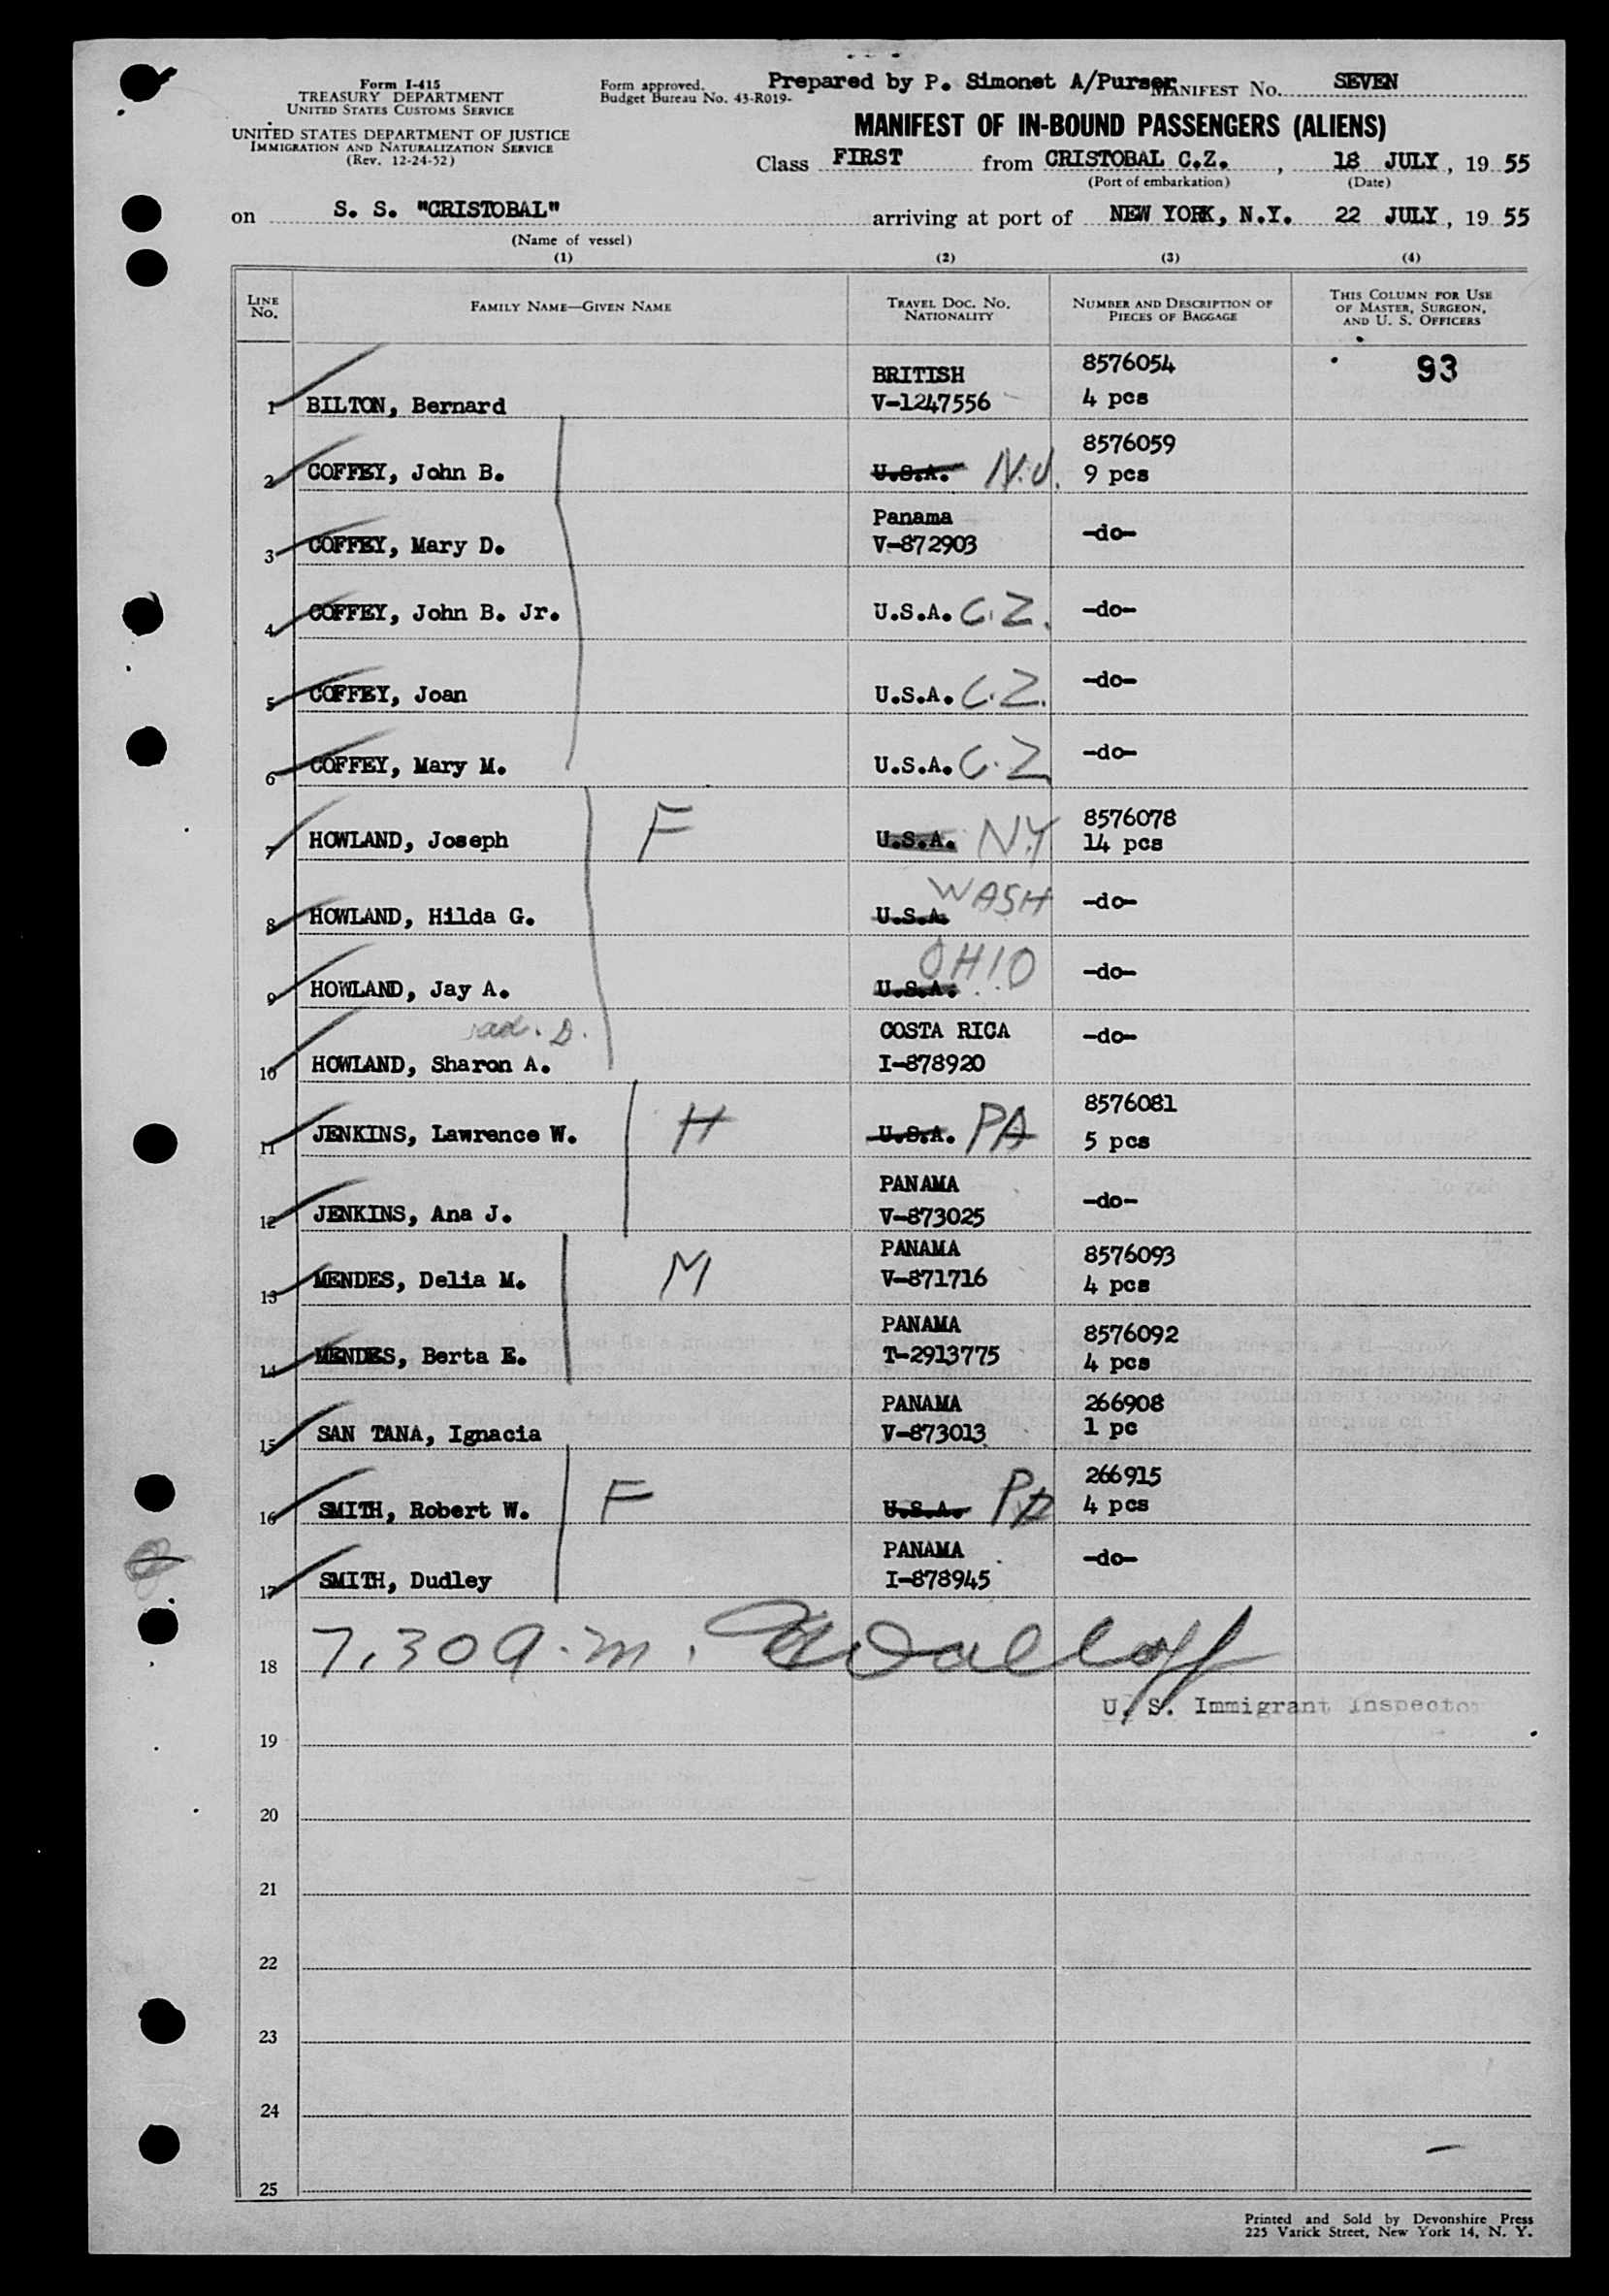 Form I-415
TREASURY DEPARTMENT
UNITED STATES CUSTOMS SERVICE
UNITED STATES DEPARTMENT OF JUSTICE
IMMIGRATION AND NATURALIZATION SERVICE
(Rev. 12-24-52)
Form approved.
Budget Bureau No. 43-R019-
Prepared by P. Simonet A/Purser MANIFEST No. SEVEN
MANIFEST OF IN-BOUND PASSENGERS (ALIENS)
Class FIRST from CRISTOBAL C.Z., 18 JULY, 19 55
(Port of embarkation) (Date)
on S. S. "CRISTOBAL" arriving at port of NEW YORK, N.Y. 22 JULY, 19 55
(Name of vessel)
(1) (2) (3) (4)
LINE No. FAMILY NAME—GIVEN NAME TRAVEL DOC. NO. NATIONALITY NUMBER AND DESCRIPTION OF PIECES OF BAGGAGE THIS COLUMN FOR USE OF MASTER, SURGEON, AND U. S. OFFICERS
BRITISH 8576054 93
1 BILTON, Bernard V-1247556 4 pcs
8576059
2 COFFEY, John B. U.S.A. N.J. 9 pcs
Panama
3 COFFEY, Mary D. V-872903 -do-
4 COFFEY, John B. Jr. U.S.A. C.Z. -do-
5 COFFEY, Joan U.S.A. C.Z. -do-
6 COFFEY, Mary M. U.S.A. C.Z -do-
8576078
7 HOWLAND, Joseph F U.S.A. N.Y 14 pcs
WASH
8 HOWLAND, Hilda G. U.S.A. -do-
OHIO
9 HOWLAND, Jay A. U.S.A. -do-
COSTA RICA -do-
10 HOWLAND, Sharon A. I-878920
8576081
11 JENKINS, Lawrence W. H U.S.A. PA 5 pcs
PANAMA
12 JENKINS, Ana J. V-873025 -do-
PANAMA 8576093
13 MENDES, Delia M. M V-871716 4 pcs
PANAMA 8576092
14 MENDES, Berta E. T-2913775 4 pcs
PANAMA 266908
15 SAN TANA, Ignacia V-873013 1 pc
266915
16 SMITH, Robert W. F U.S.A. PA 4 pcs
PANAMA -do-
17 SMITH, Dudley I-878945
18 7.30 a.m.
U. S. Immigrant Inspector
19
20
21
22
23
24
25
Printed and Sold by Devonshire Press
225 Varick Street, New York 14, N. Y.